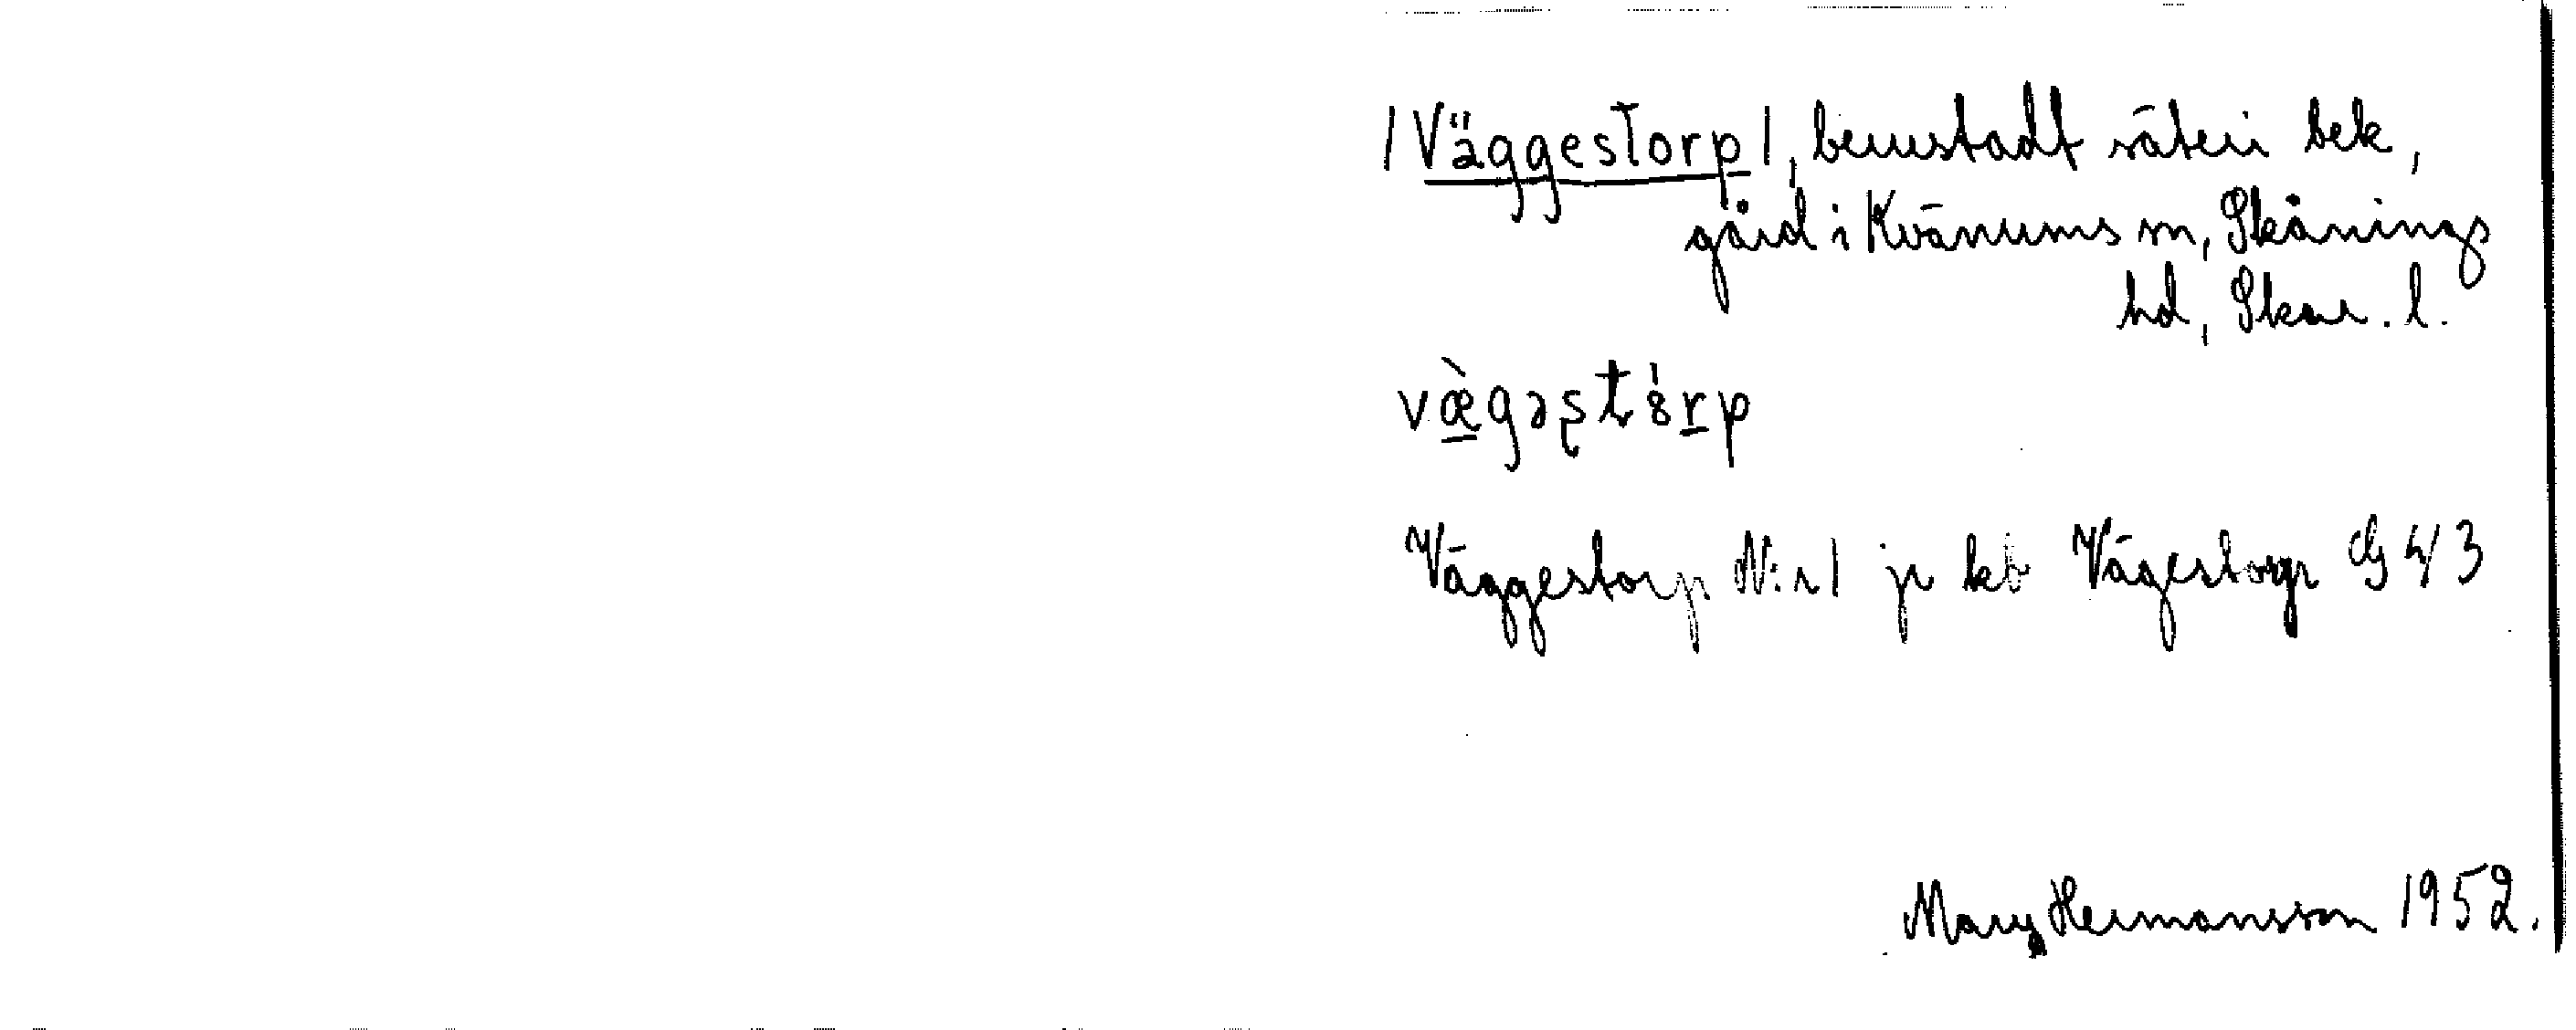 /Väggestorp/, berustadt säteri bek,
gård i Kvänums sn, Skånings
hd, Skar. l.
væ̀gəstȯrp
Väggestorp N:r 1 jr kb Vägestorp G 4/3
Mary Hermansson 1952.